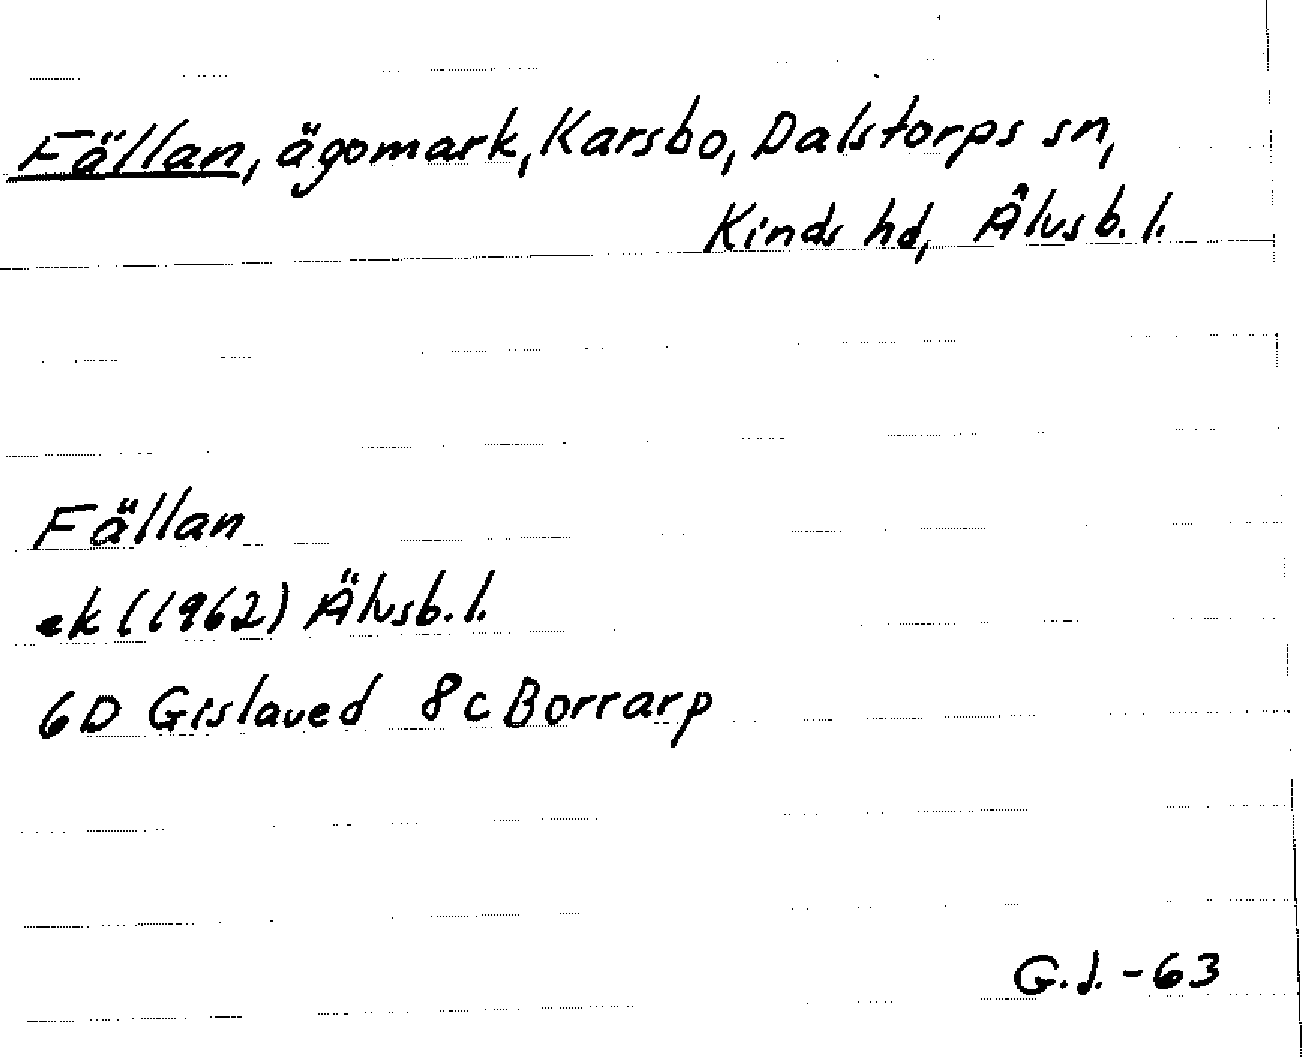 Fällan, ägomark, Karsbo, Dalstorps sn,
Kinds hd, Älvsb. l.
Fällan
ek ( (1962) Älvsb. l.
6D Gislaved 8c Borrarp
G.J. -63